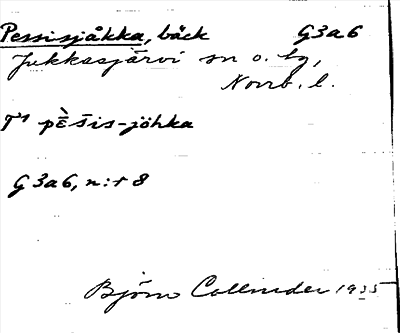 Pessisjåkka, bäck G3a6
Jukkasjärvi sn o. tg,
Norrb. l.
pḕšis-jòhka
G3a6, n:r 8
Björn Collinder 1935